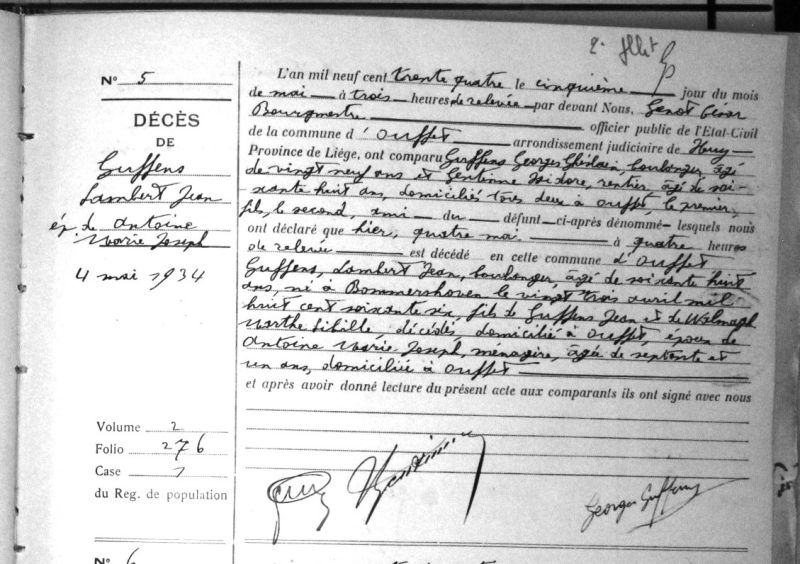 2e fllet
N° 5
DÉCÈS
DE
Guffens
Lambert Jean
ép. de Antoine
Marie Joseph
4 mai 1934
Volume 2
Folio 276
Case 7
du Reg. de population
L'an mil neuf cent trente quatre le cinquième jour du mois
de mai à trois heures de relevée par devant Nous, Genot César
Bourgmestre officier public de l'Etat-Civil
de la commune d'Ouffet arrondissement judiciaire de Huy
Province de Liége, ont comparu Guffens Georges Ghislain, boulanger, âgé
de vingt neuf ans et Centinne Isidore, rentier, âgé de soi-
xante huit ans, domiciliés tous deux à Ouffet, le premier,
fils, le second, ami du défunt ci-après dénommé lesquels nous
ont déclaré que hier, quatre mai à quatre heures
de relevée est décédé en cette commune d'Ouffet
Guffens, Lambert Jean, boulanger, âgé de soixante huit
ans, né à Bommershoven le vingt trois avril mil
huit cent soixante six, fils de Guffens Jean et de
Marthe Sibille, décédés, domicilié à Ouffet, époux de
Antoine Marie-Joseph, ménagère, âgée de septante et
un ans, domiciliée à Ouffet
et après avoir donné lecture du présent acte aux comparants ils ont signé avec nous
Georges Guffens
N° 6